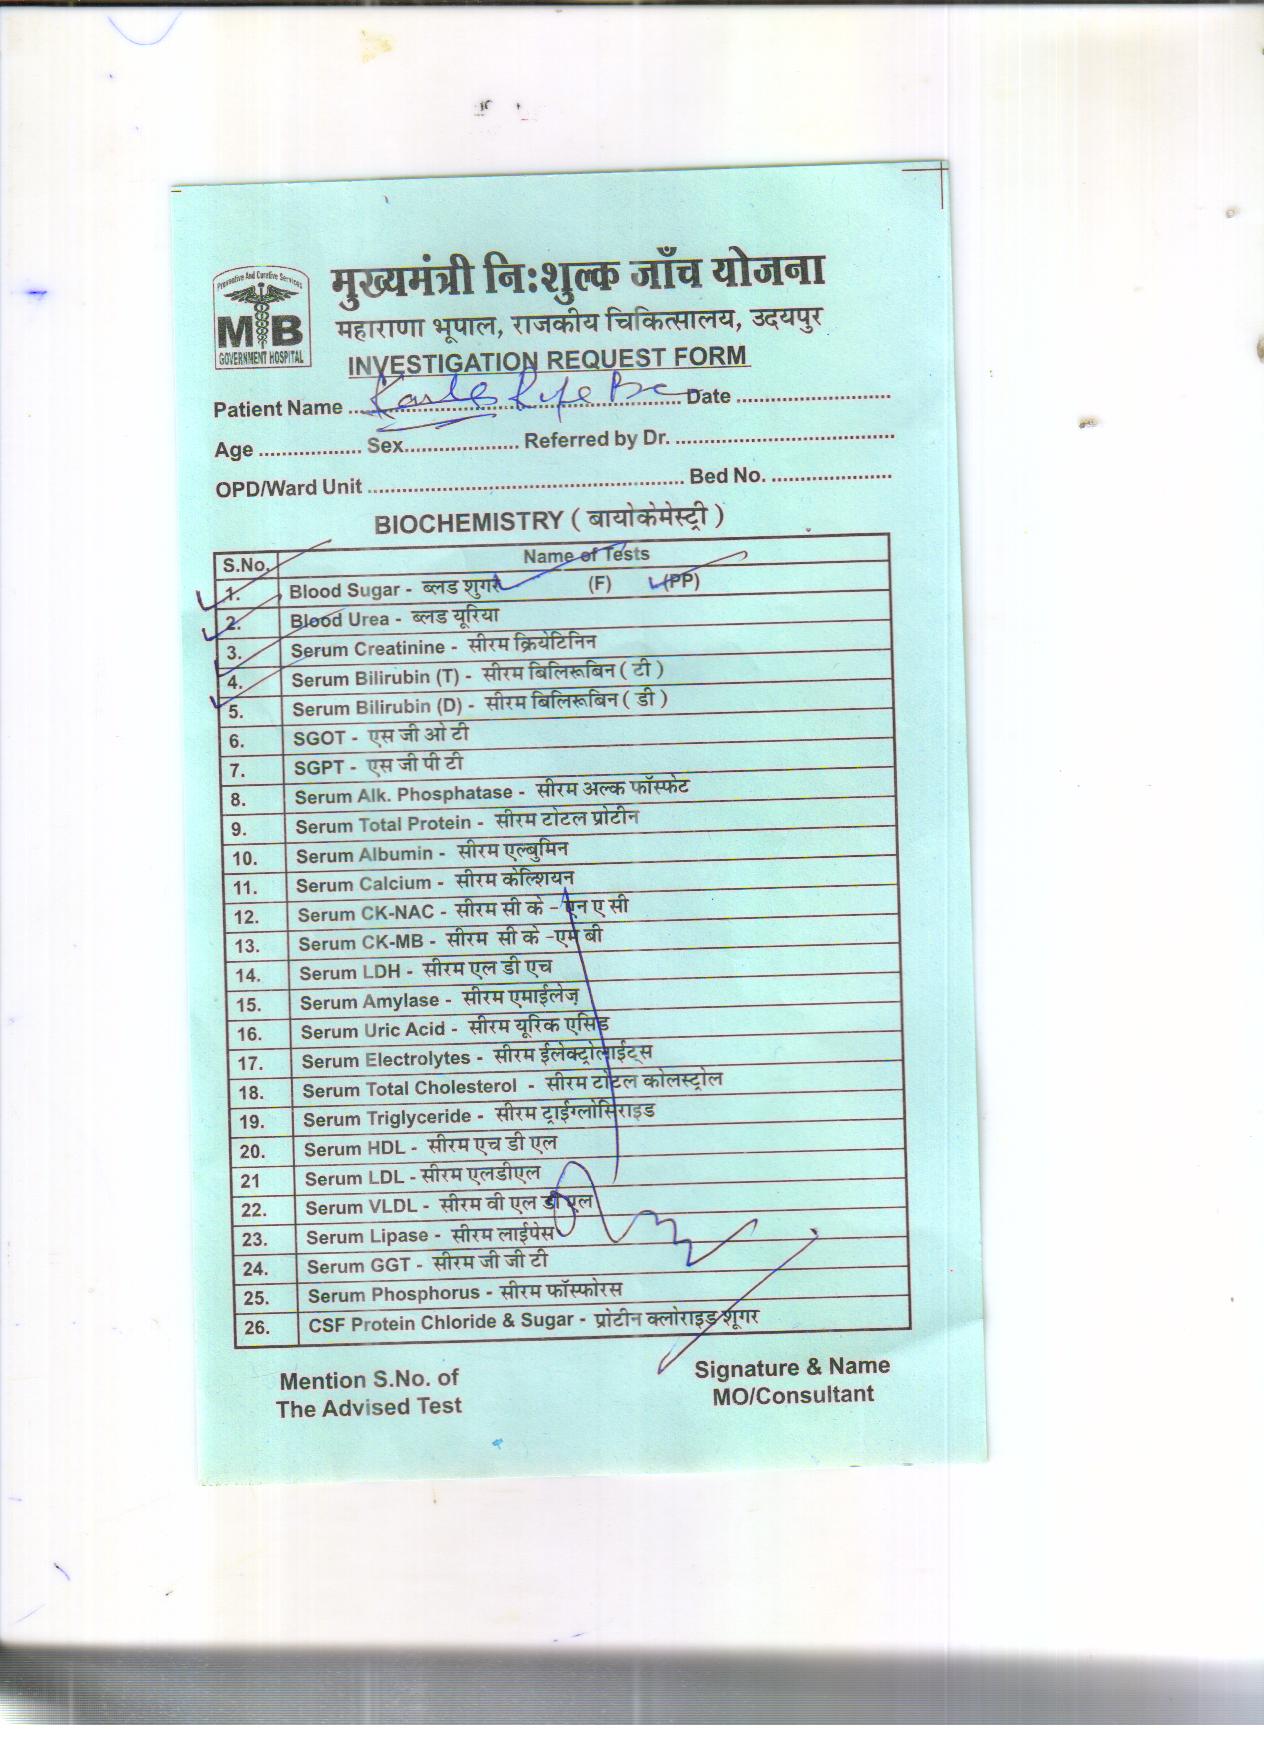 मुख्यमंत्री निःशुल्क जाँच योजना
Preventive And Curative Services
MB
GOVERNMENT HOSPITAL
महाराणा भूपाल, राजकीय चिकित्सालय, उदयपुर
INVESTIGATION REQUEST FORM
Patient Name ........ Date ........
Age ........ Sex........ Referred by Dr. ........
OPD/Ward Unit ........ Bed No. ........
BIOCHEMISTRY ( बायोकेमेस्ट्री )
S.No. Name of Tests
1. Blood Sugar - ब्लड शुगर (F) (PP)
2. Blood Urea - ब्लड यूरिया
3. Serum Creatinine - सीरम क्रियेटिनिन
4. Serum Bilirubin (T) - सीरम बिलिरूबिन ( टी )
5. Serum Bilirubin (D) - सीरम बिलिरूबिन ( डी )
6. SGOT - एस जी ओ टी
7. SGPT - एस जी पी टी
8. Serum Alk. Phosphatase - सीरम अल्क फॉस्फेट
9. Serum Total Protein - सीरम टोटल प्रोटीन
10. Serum Albumin - सीरम एल्बुमिन
11. Serum Calcium - सीरम केल्शियन
12. Serum CK-NAC - सीरम सी के - एन ए सी
13. Serum CK-MB - सीरम सी के -एम बी
14. Serum LDH - सीरम एल डी एच
15. Serum Amylase - सीरम एमाईलेज़
16. Serum Uric Acid - सीरम यूरिक एसिड
17. Serum Electrolytes - सीरम ईलेक्ट्रोलाईट्स
18. Serum Total Cholesterol - सीरम टोटल कोलस्ट्रोल
19. Serum Triglyceride - सीरम ट्राईग्लोसिराइड
20. Serum HDL - सीरम एच डी एल
21 Serum LDL - सीरम एलडीएल
22. Serum VLDL - सीरम वी एल डी एल
23. Serum Lipase - सीरम लाईपेस
24. Serum GGT - सीरम जी जी टी
25. Serum Phosphorus - सीरम फॉस्फोरस
26. CSF Protein Chloride & Sugar - प्रोटीन क्लोराइड शूगर
Mention S.No. of
The Advised Test
Signature & Name
MO/Consultant